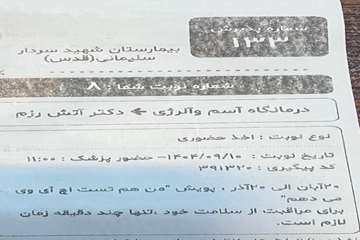 شماره نوبت
۱۳۳
بیمارستان شهید سردار
سلیمانی(قدس)
شماره نوبت شما: ۸
درمانگاه آسم وآلرژی ← دکتر آتش رزم
نوع نوبت : اخذ حضوری
تاریخ نوبت : ۱۴۰۴/۰۹/۱۰- حضور پزشک : ۱۱:۰۰
کد پیگیری : ۳۹۱۳۲۰
۲۰آبان الی ۲۰آذر ، پویش "من هم تست اچ آی وی
می دهم"
برای مراقبت از سلامت خود ،تنها چند دقیقه زمان
لازم است.